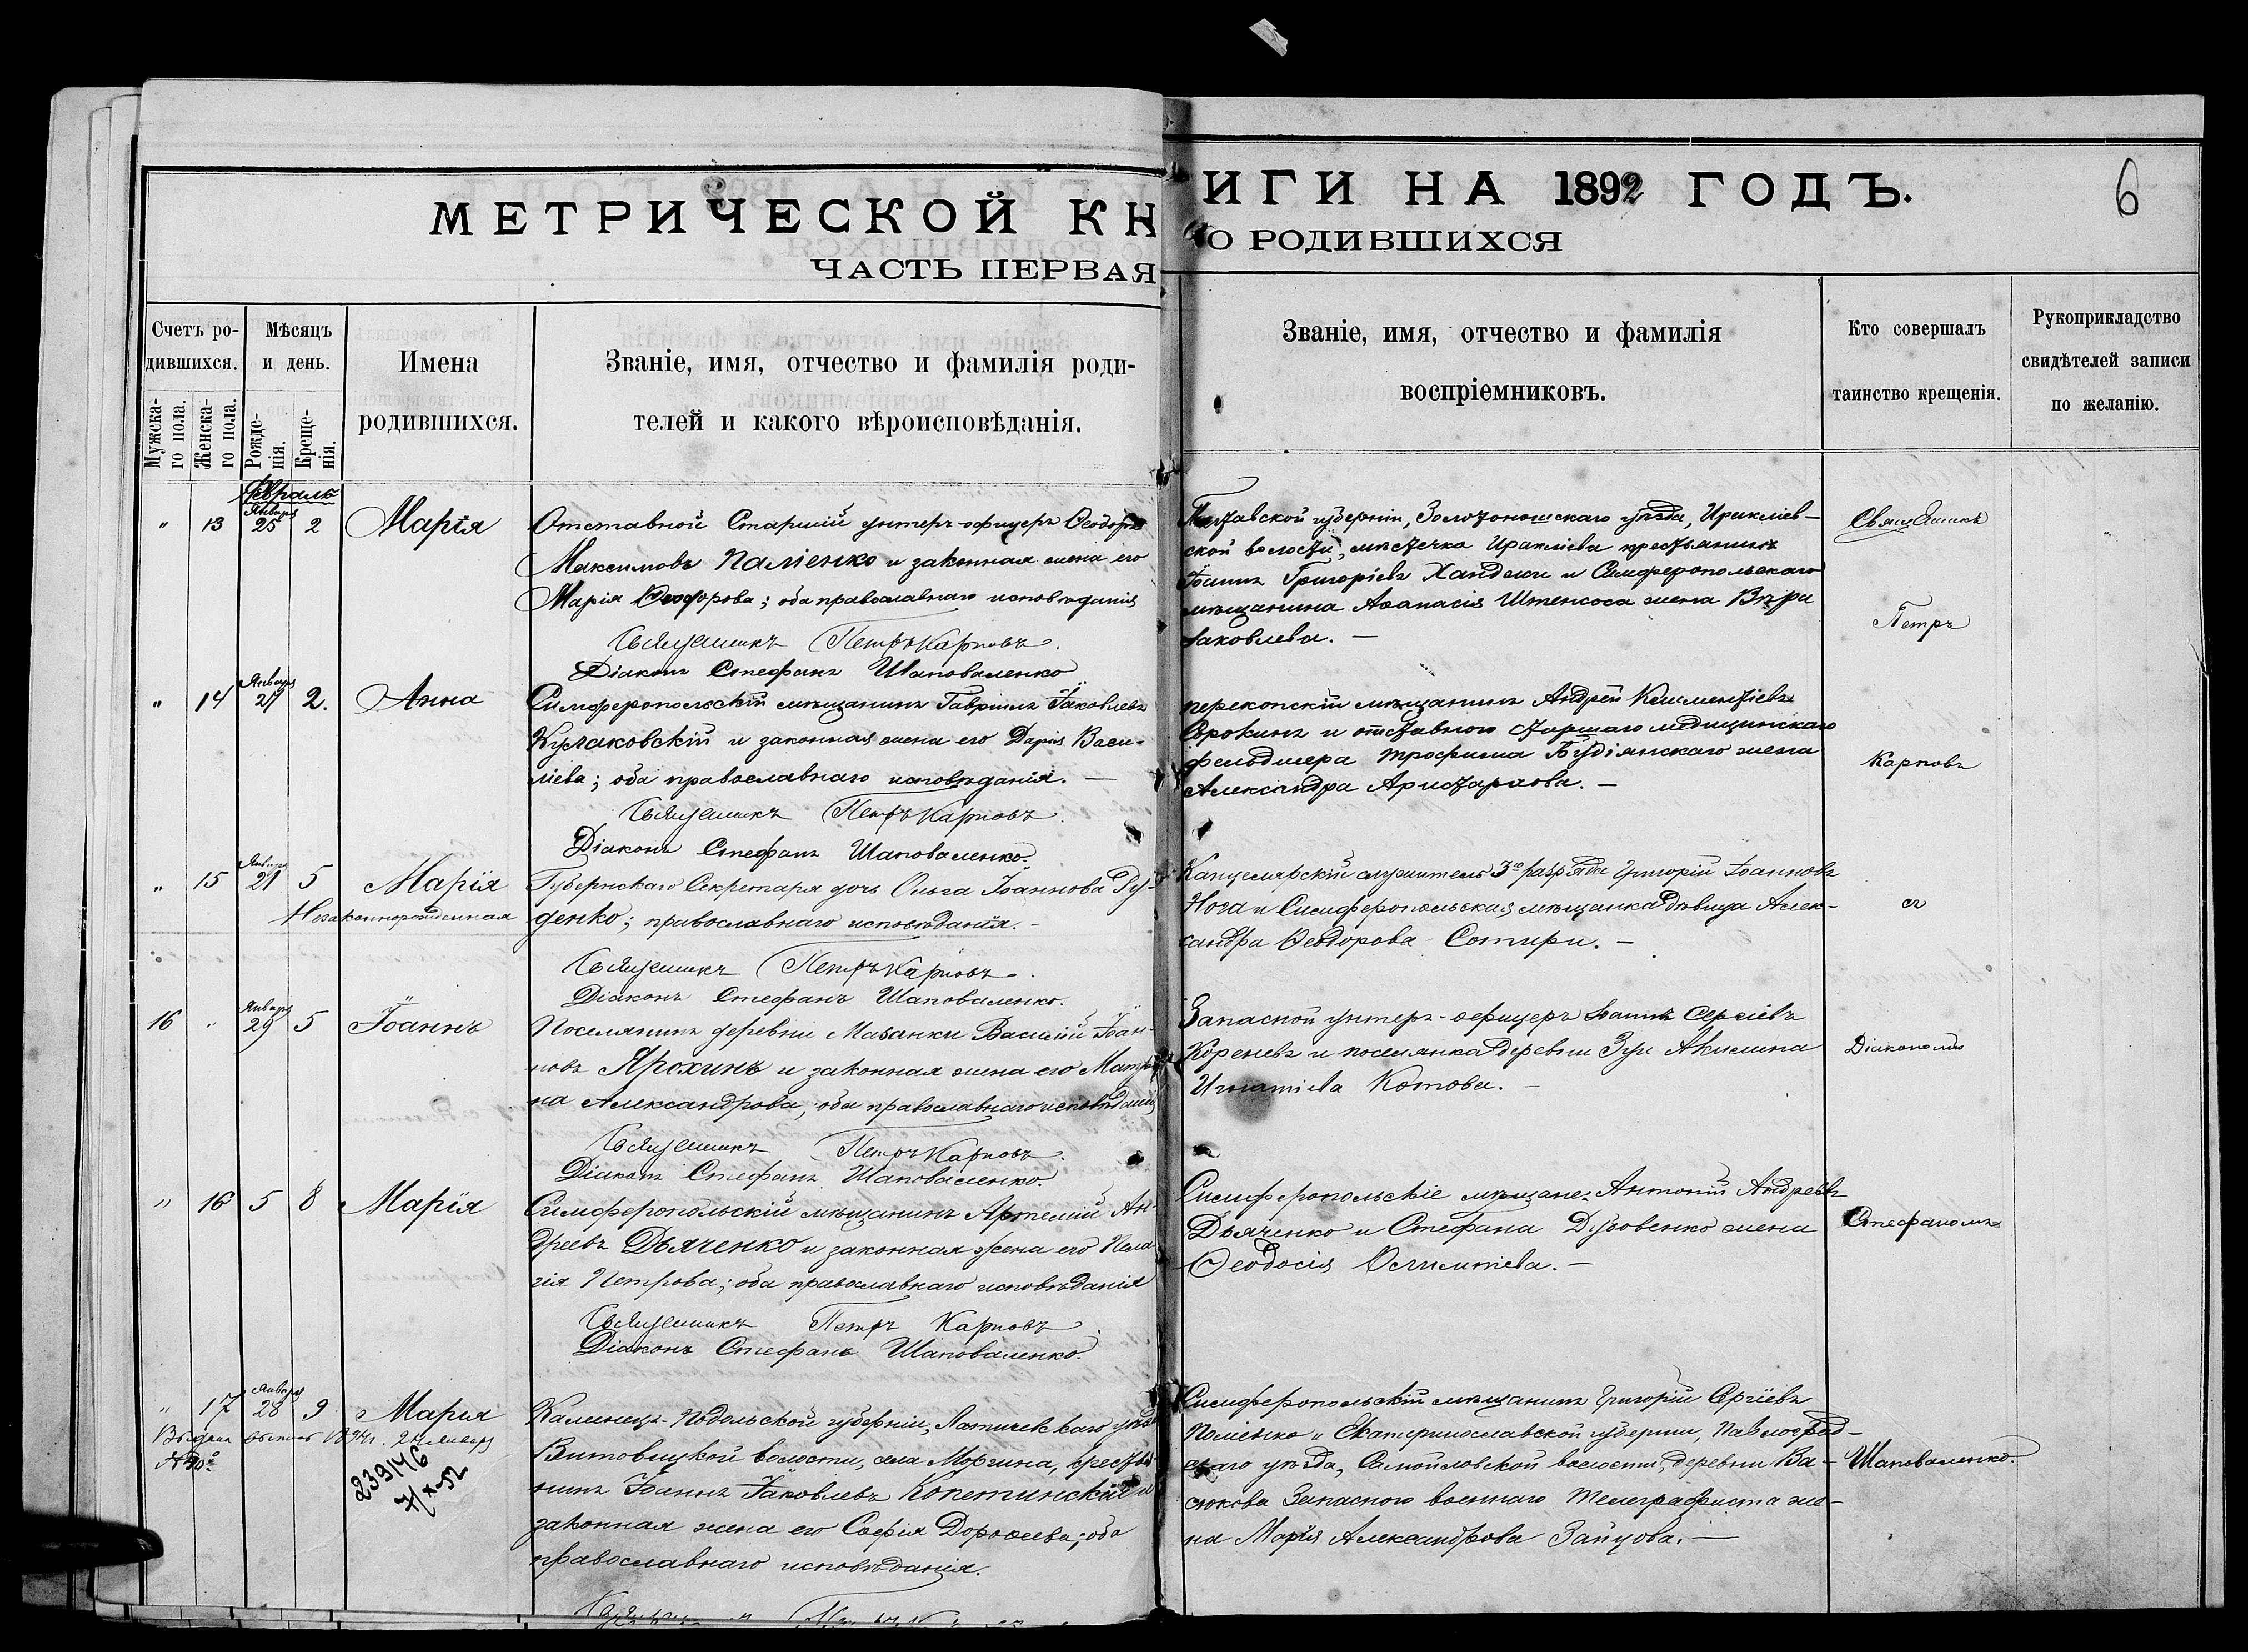 МЕТРИЧЕСКОЙ КНИГИ НА 1892 ГОДЪ.
6
ЧАСТЬ ПЕРВАЯ О РОДИВШИХСЯ
Счетъ ро-
дившихся.
Мужска-
го пола.
Женска-
го пола.
Мѣсяцъ
и день.
Рожде-
нія.
Креще-
нія.
Имена
родившихся.
Званіе, имя, отчество и фамилія роди-
телей и какого вѣроисповѣданія.
Званіе, имя, отчество и фамилія
воспріемниковъ.
Кто совершалъ
таинство крещенія.
Рукоприкладство
свидѣтелей записи
по желанію.
Февраль
Января
" 13 25 2 Марія
Отставной Старшій унтеръ-офицеръ Ѳеодоръ
Максимовъ Паліенко и законная жена его
Марія Ѳеодорова; оба православнаго исповѣданія
Священникъ Петръ Карповъ.
Діаконъ Стефанъ Шаповаленко
Полтавской губерніи, Золотоношскаго уѣзда, Ирклiев-
ской волости, мѣстечка Иракліева крестьянинъ
Іоаннъ Григоріевъ и Симферопольскаго
мѣщанина Аѳанасія жена Вѣра
Іаковлева. —
Священникъ
Петръ
Января
" 14 27 2. Анна
Симферопольскій мѣщанинъ Гавріилъ Іаковлевъ
Кулаковскій и законная жена его Дарія Васи-
ліева; оба православнаго исповѣданія. —
Священникъ Петръ Карповъ.
Діаконъ Стефанъ Шаповаленко.
перекопскій мѣщанинъ Андрей Климентіевъ
Сорокинъ и отставного старшаго медицинскаго
фельдшера Трофима жена
Александра Аристархова. —
Карповъ
Января
" 15 21 5 Марія
Незаконнорожденная
Губернскаго Секретаря дочь Ольга Іоаннова Ру-
денко; православнаго исповѣданія. -
Священникъ Петръ Карповъ.
Діаконъ Стефанъ Шаповаленко.
Канцелярскій служитель 3го разряда Григорій Іоанновъ
Нога и Симферопольская мѣщанка дѣвица Алек-
сандра Ѳеодорова Сотири. —
съ
Января
16 " 29 5 Іоаннъ
Поселянинъ деревни Мазанки Василій Іоан-
новъ Ярохинъ и законная жена его Матро-
на Александрова; оба православнаго исповѣданія
Священникъ Петръ Карповъ.
Діаконъ Стефанъ Шаповаленко.
Запасной унтеръ-офицеръ Іоаннъ Сергіевъ
Кореневъ и поселянка деревни Зуи Акилина
Игнатіева Котова. —
Діакономъ
" 16 5 8 Марія
Симферопольскій мѣщанинъ Артемій Ан-
дреевъ Дьяченко и законная жена его Пела-
гія Петрова; оба православнаго исповѣданія
Священникъ Петръ Карповъ.
Діаконъ Стефанъ Шаповаленко.
Симферопольскіе мѣщане: Антоній Андреевъ
Дьяченко и Стефана жена
Ѳеодосія —
Стефаномъ
Января
" 17 28 9 Марія
Выдана выпись 1894г. 24 Января
№ 30.
239146
7/X-52
Каменецъ-Подольской губерніи, Летичевскаго уѣзда
волости, села крестья-
нинъ Іоаннъ Іаковлевъ Копетинскій и
законная жена его Софія Дороѳеева; оба
православнаго исповѣданія.
Симферопольскій мѣщанинъ Григорій Сергіевъ
и Екатеринославской губерніи, Павлоград-
скаго уѣзда, Самойловской волости, деревни Ва-
сюкова Запасного военнаго телеграфиста же-
на Марія Александрова Зайцова. —
Шаповаленко.